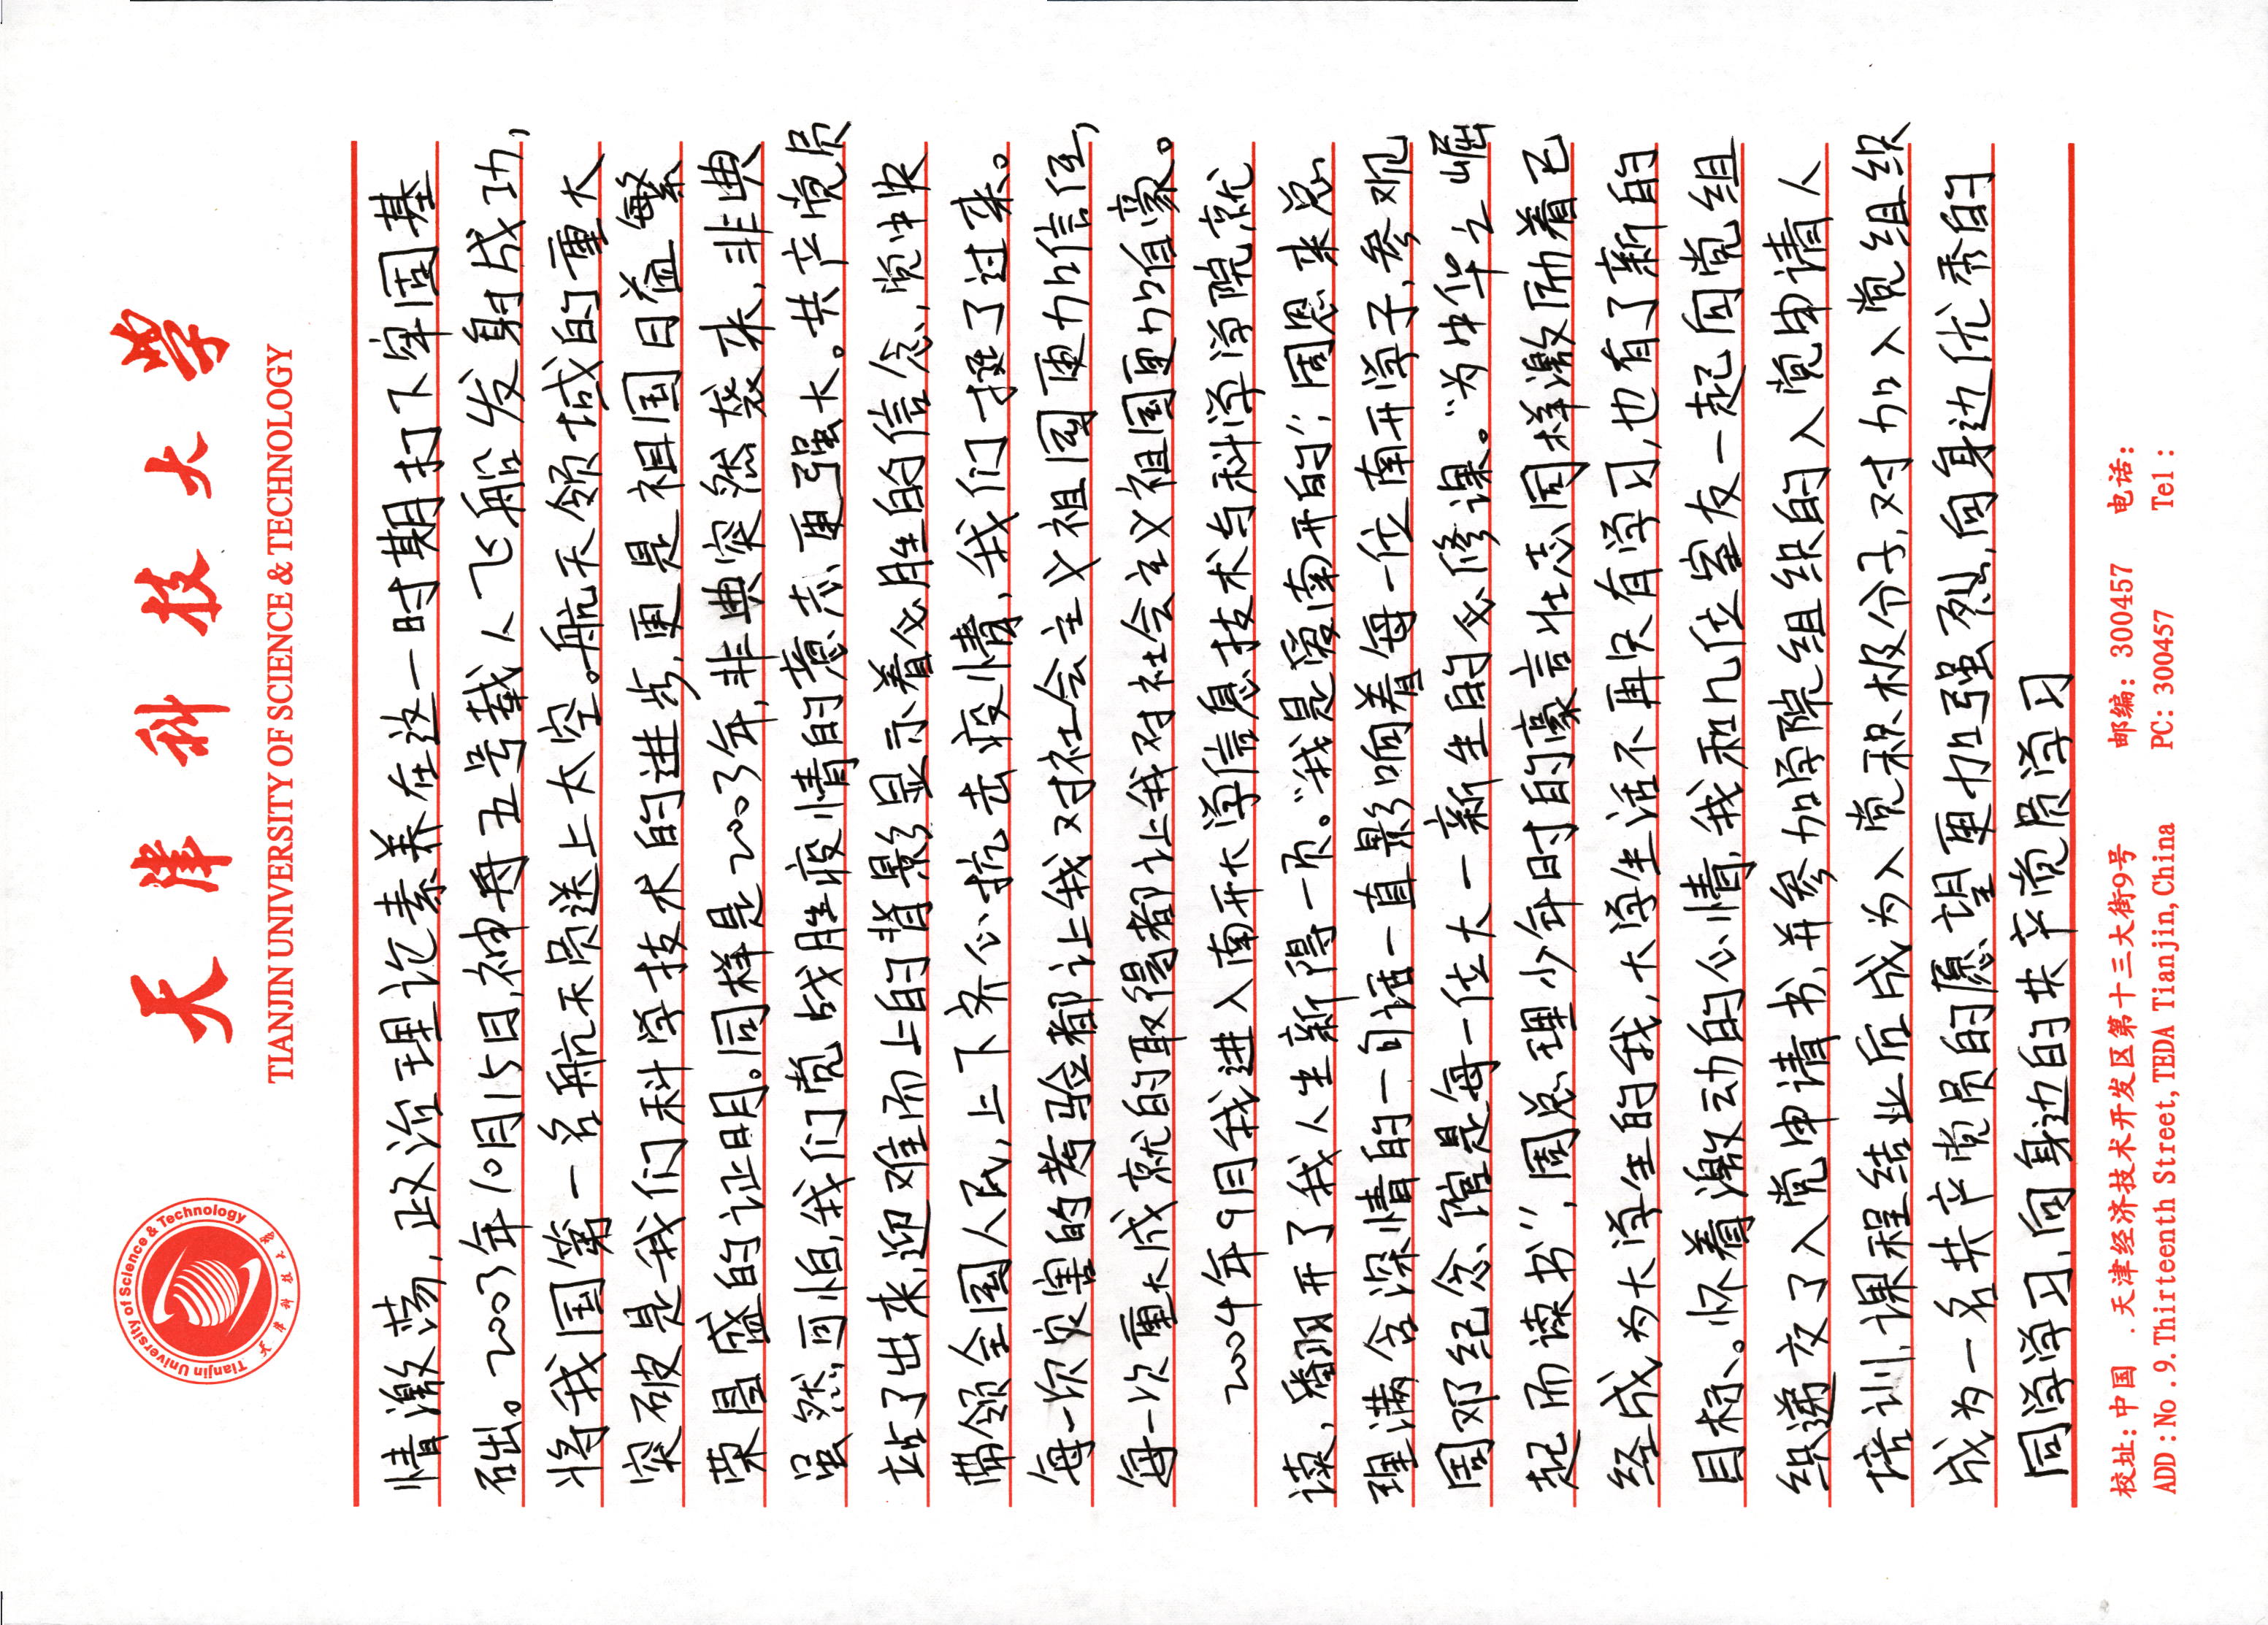 Tianjin University of Science & Technology
天津科技大学
天津科技大学
TIANJIN UNIVERSITY OF SCIENCE & TECHNOLOGY
情激荡,政治理论素养在这一时期打下牢固基
础。2003年10月15日,神舟五号载人飞船发射成功,
将我国第一名航天员送上太空。航天领域的重大
突破是我们科学技术的进步,更是祖国日益繁
荣昌盛的证明。同样是2003年,非典突然袭来,非典
虽然可怕,我们党战胜疫情的意志更强大。共产党员
站了出来,迎难而上的背影显示着必胜的信念,党中央
带领全国人民,上下齐心抗击疫情,我们才挺了过来。
每一次灾害的考验都让我对社会主义祖国更加信任,
每一次重大成就的取得都让我对社会主义祖国更加自豪。
2004年9月我进入南开大学信息技术与科学学院就
读,翻开了我人生新得一页。“我是爱南开的”,周恩来总
理满含深情的一句话一直影响着每一位南开学子,参观
周邓纪念馆是每一位大一新生的必修课。“为中华之崛
起而读书”,周总理少年时的豪言壮志同样激励着已
经成为大学生的我,大学生活不再只有学习,也有了新的
目标。怀着激动的心情,我和几位室友一起向党组
织递交了入党申请书,并参加学院组织的入党申请人
培训,课程结业后成为入党积极分子,对加入党组织
成为一名共产党员的愿望更加强烈,向身边优秀的
同学学习,向身边的共产党员学习
校址:中国.天津经济技术开发区第十三大街9号 邮编:300457 电话:
ADD:No.9.Thirteenth Street,TEDA Tianjin,China PC:300457 Tel: